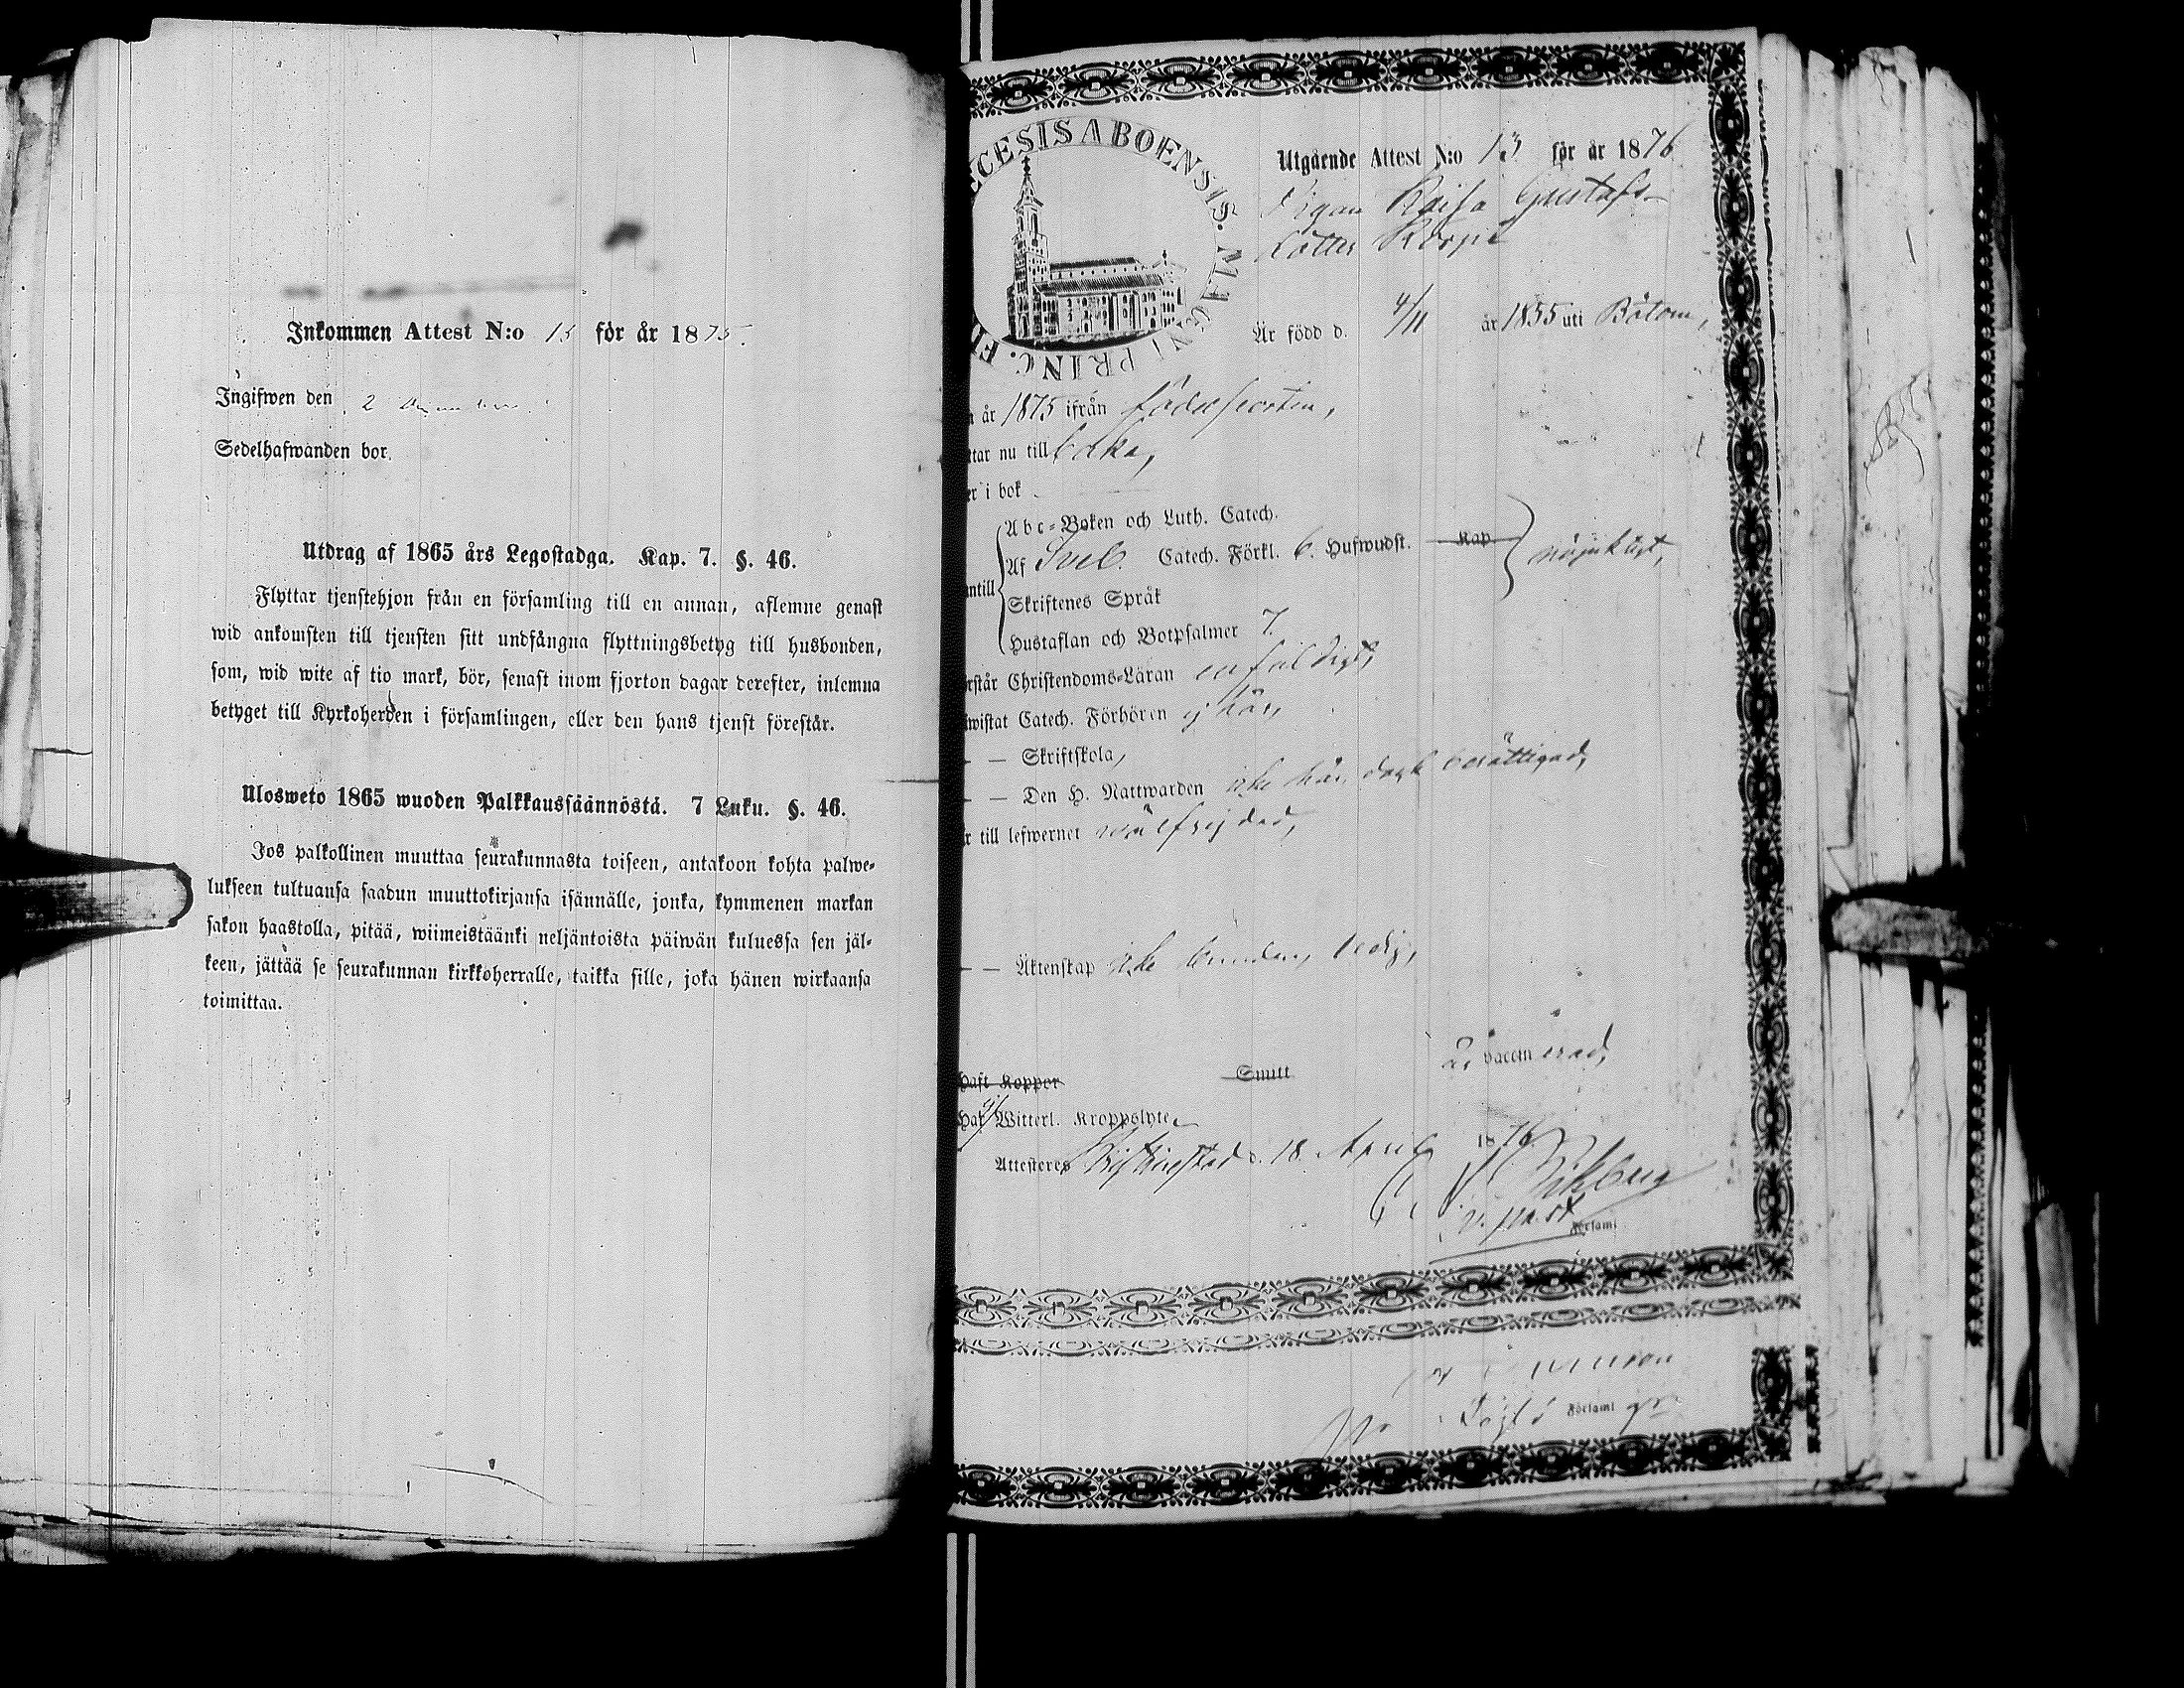 Inkommen Attest N:o 15 för år 1875.
Ingifwen den 2
Sedelhafwanden bor.
Utdrag af 1865 års Legostadga. Kap. 7. §. 46.
Flyttar tjenstehjon från en församling till en annan, aflemne genast
wid ankomsten till tjensten sitt undfångna flyttningsbetyg till husbonden,
som, wid wite af tio mark, bör, senast inom fjorton dagar derefter, inlemna
betyget till Kyrkoherden i församlingen, eller den hans tjenst förestår.
Ulosweto 1865 wuoden Palkkaussäännöstä. 7 Luku. §. 46.
Jos palkollinen muuttaa seurakunnasta toiseen, antakoon kohta palwe-
lukseen tultuansa saadun muuttokirjansa isännälle, jonka, kymmenen markan
sakon haastolla, pitää, wiimeistäänki neljäntoista päiwän kuluessa sen jäl-
keen, jättää se seurakunnan kirkkoherralle, taikka sille, joka hänen wirkaansa
toimittaa.
CESIS ABOENSIS. MAGNI PRINC. FI
Utgående Attest N:o 13 för år 1876
Pigan Kaisa Gustafs-
dotter Korpi
Är född d. 4/11 år 1855 uti Bötom,
år 1875 ifrån födelseorten,
tar nu till baka,
er i bok
Abc-Boken och Luth. Catech.
Af Sveb. Catech. Förkl. 6. Hufwudst. Kap nöjaktigt,
ntill Skriftenes Språk
Hustaflan och Botpsalmer 7.
rstår Christendoms-Läran enfaldigt,
wistat Catech. Förhören ej här,
— Skriftskola,
— Den H. Nattwarden icke här, dock berättigad,
r till lefwernet wälfrejdad,
— — Äktenskap icke bunden, ledig,
haft Koppor Smitt är vaccinerad,
Har ej Witterl. Kroppslyte
Attesteres Kristinestad d. 18 April 1876.
v. past.
Församl
Församl